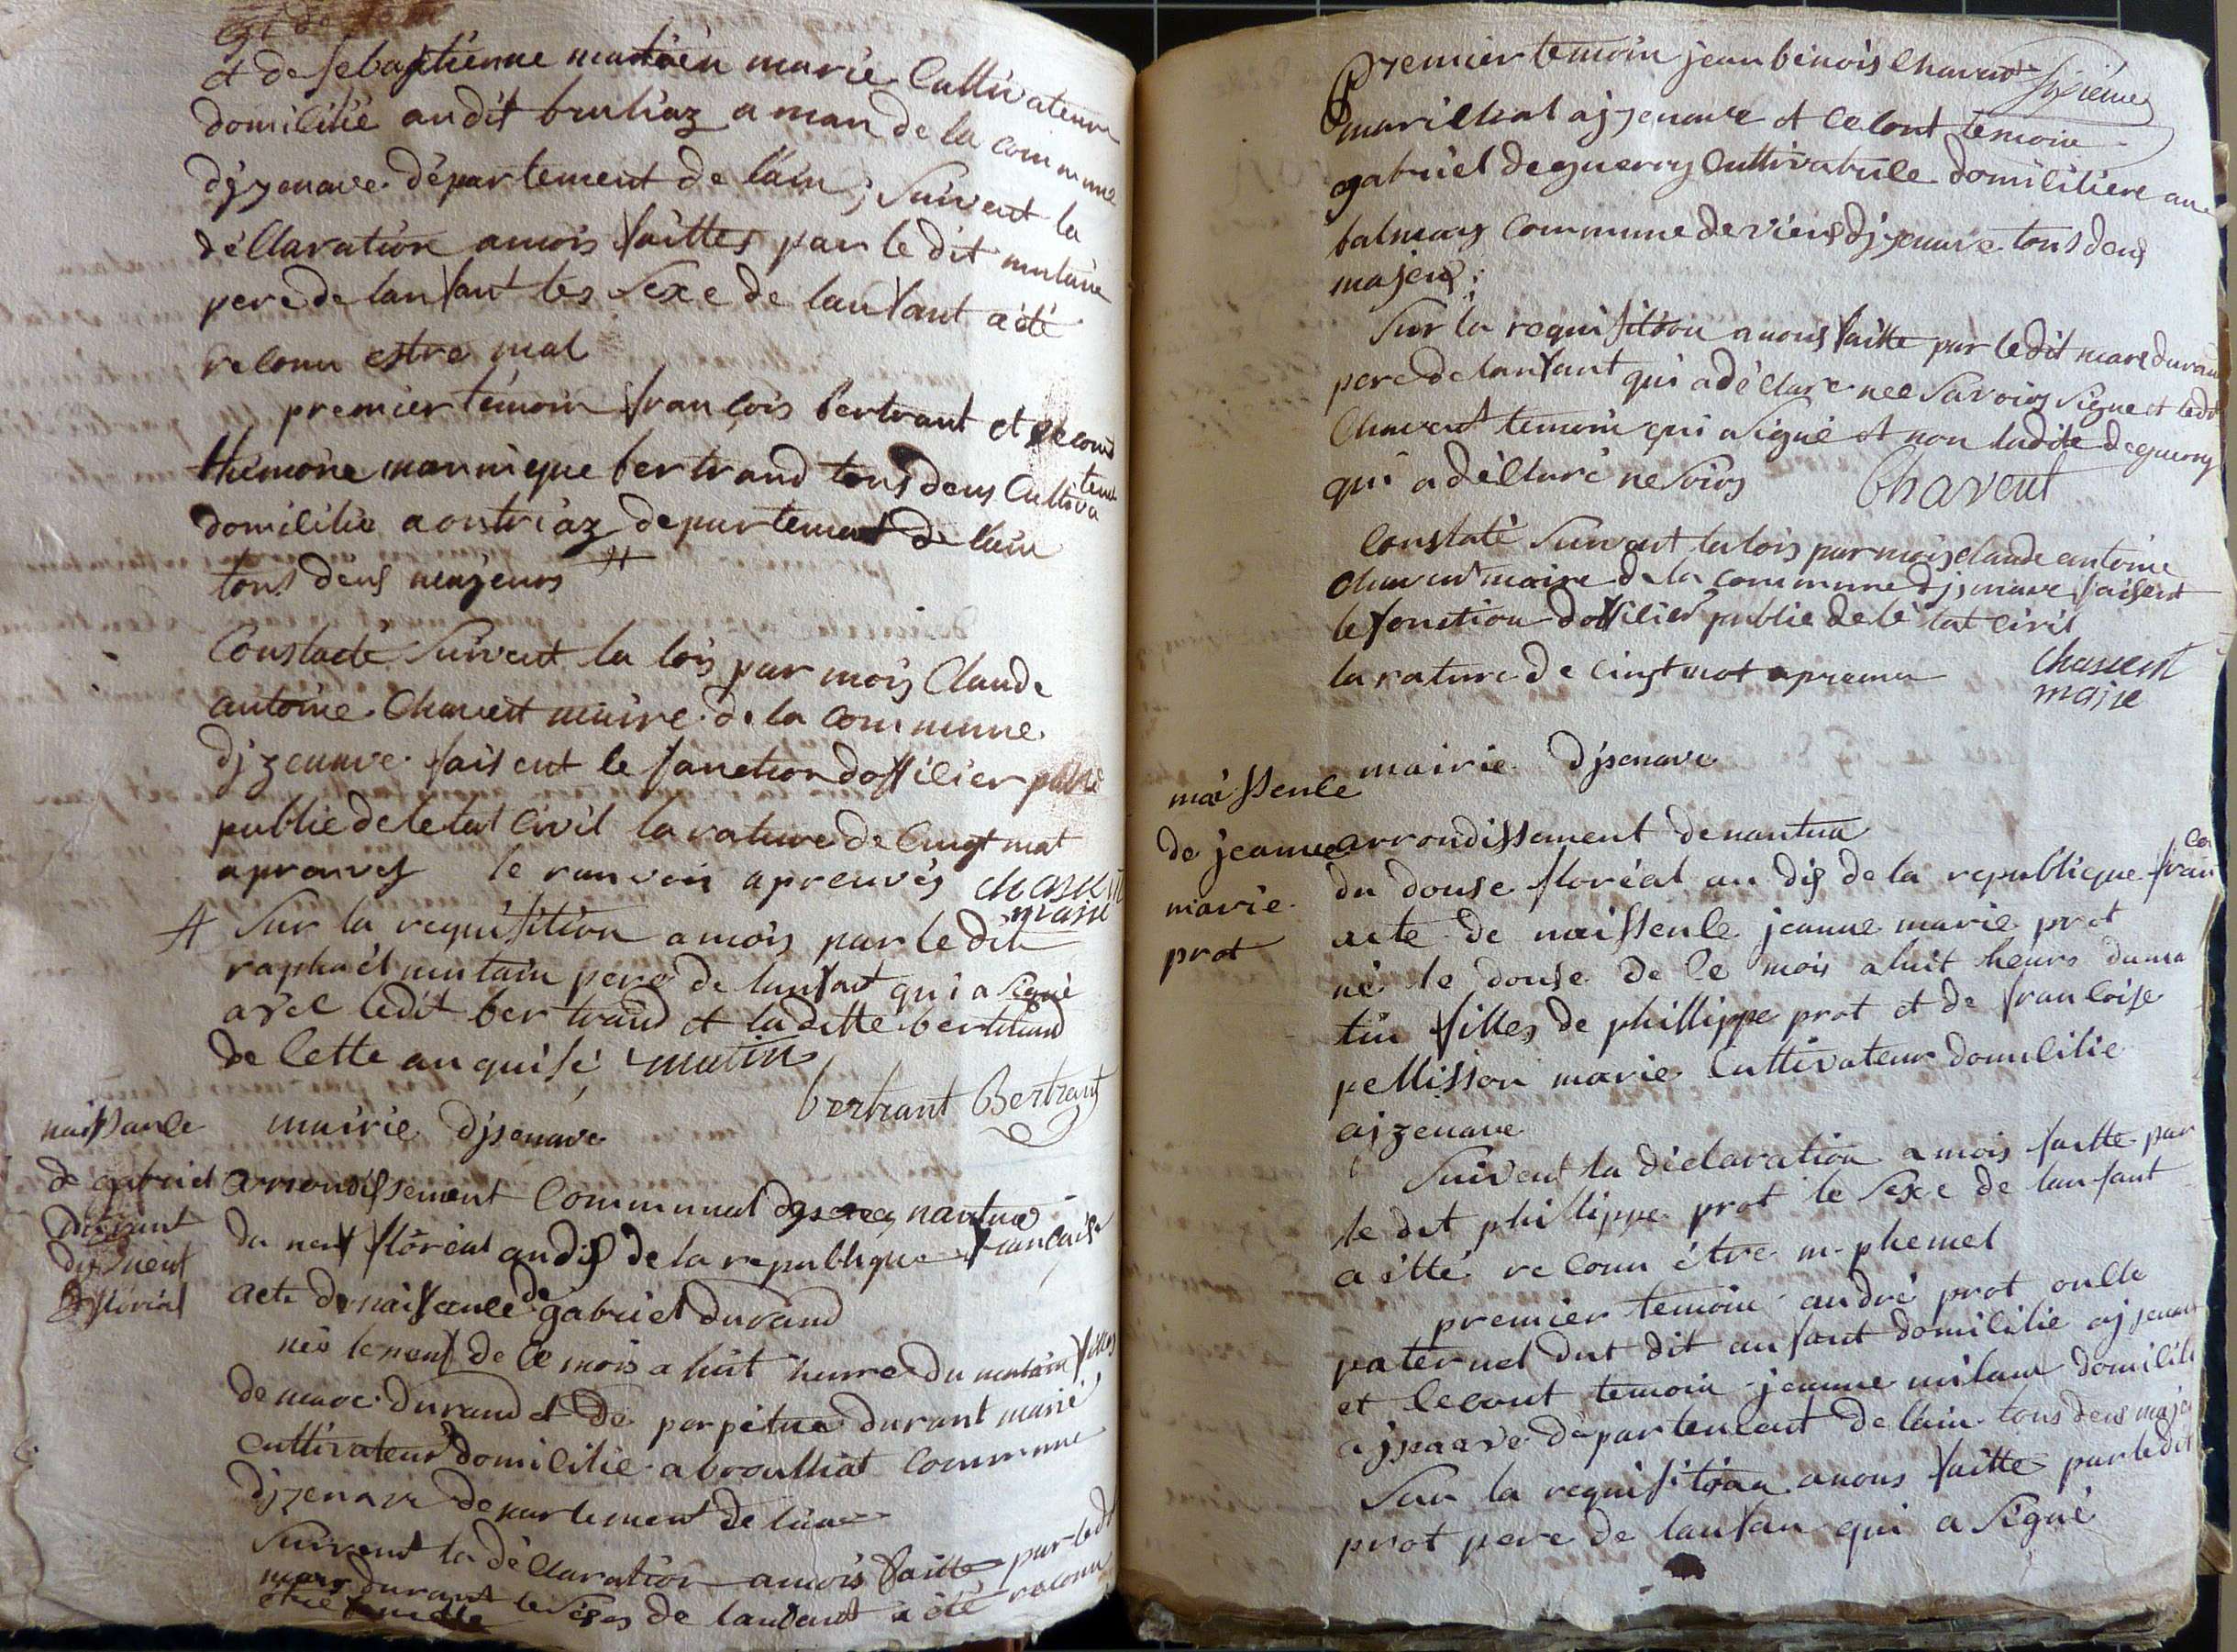 et de sebastienne matain marie Cultivateur
domicilié audit bruliaz a man de la commune
djzenave département de lain ; Suivent la
déClaration amois faittes par le dit matain
pere de lanfant les sexe de lanfant a été
reconu estre mal
premier témoin francois bertrant et second
thémoine mannique bertrand tous deus Cultiva
teur
domicilie a ontriaz departement de lain
tous deus majeurs #
Constaté Suivent la lois par mois Claude
antoine Chavent maire de la commune
djzenave faisent le fonction doffilier
public de letat Civil la rature de Cinqt mot
aprouves le ranvoi aprouvés Chavent
maire
# Sur la requisition amois par le dit
raphaël matain pere de lanfant qui a signé
avec ledit bertrand et laditte bertrand
de cette anquise matin
bertrant Bertrant
naissance
de gabriel
durant
du neuf
floreal
mairie djsenave
arrondissement Communal nantua
du neuf floréal an dis de la republique francaise
acte de naissance de gabriel durand
née le neuf de ce mois a huit heure du matain filles
de marc durand et de perpétue durant marié
cultivateur domicilie a broulliat commune
djzenave departement de lain
Suivent la déClaration amois faitte par ledit
marc durant le sexes de lanfant a été reconu
etre femelle
Premier temoin jean benois Chavent
marilhat ajzenave et second temoin
gabriel deguerry Cultivatrice domiciliere au
balmay commune de vieus djzenave tous deus
majeus ;
Sur la requisition a nous faitte par ledit marc durand
pere de lanfant qui a déClare nee savoirs signe et ledit
Chavent temoin qui a signé et non ladite deguerry
qui a déClaré ne soirs Chavent
Constaté Suivant la lois par mois claude antoine
Chavent maire de la commune djzenave faisent
le fonction dofficier public de lé tat civil
la rature de cinqt mot aprouvee Chavent
maire
naissence
de jeanne
marie
prot
mairie djsenave
arrondissement de nantua
du douse floréal an dis de la republique fran
ca
acte de naissence jeanne marie prot
né le douse de ce mois a huit heurs du ma
tin filles de phillippe prot et de francoise
pellisson marie Cultivateur domicilie
ajzenave
Suivent la declaration amois faitte par
le dit phillippe prot le sexe de lanfant
a étté reconu être m. phemel
premier temoin andré prot oncle
paternel dut dit anfant domicilie ajzenave
et second temoin jeanne milan domicilie
ajzenave départemant de lain tous deus majeu
Sur la requisition a nous faitte par ledit
prot pere de lanfan qui a signé